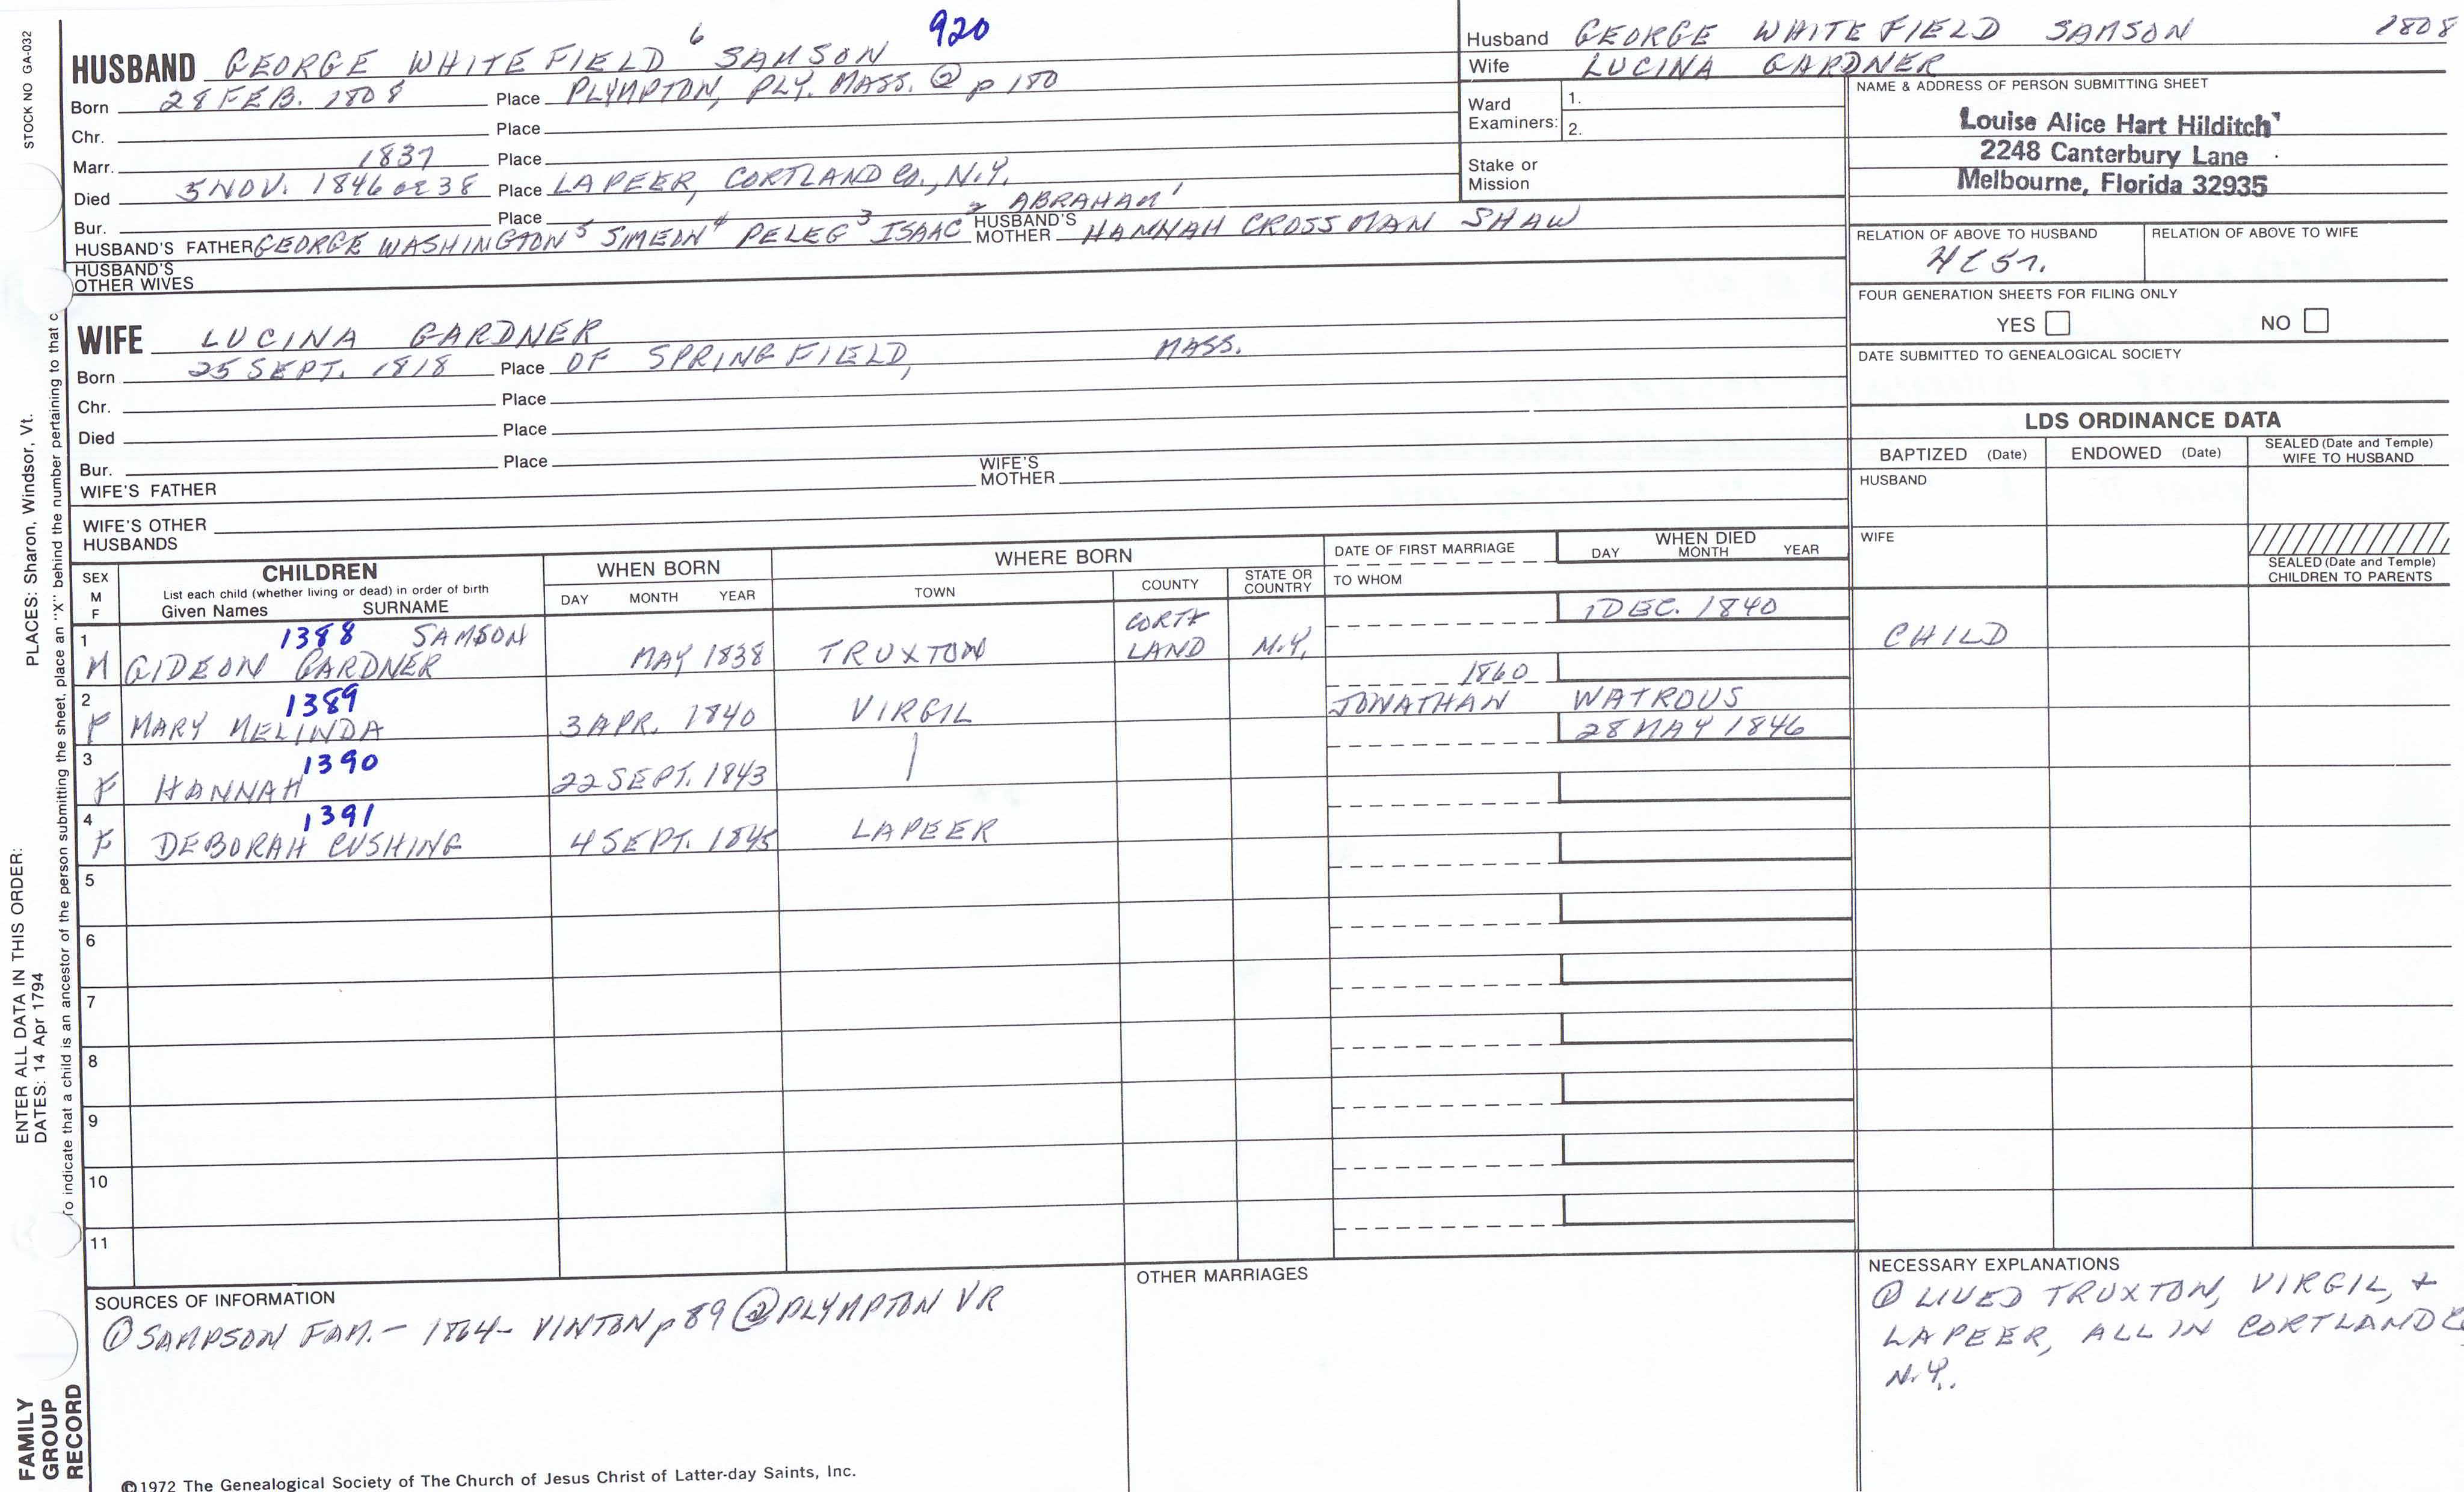 STOCK NO GA-032
PLACES: Sharon, Windsor, Vt.
ENTER ALL DATA IN THIS ORDER:
DATES: 14 Apr 1794
To indicate that a child is an ancestor of the person submitting the sheet, place an "X" behind the number pertaining to that c
FAMILY
GROUP
RECORD
HUSBAND GEORGE WHITEFIELD 6 SAMSON 920
Born 28 FEB. 1808 Place PLYMPTON, PLY. MASS. ② p 180
Chr. Place
Marr. 1837 Place
Died 5 NOV. 1846 or 38 Place LAPEER, CORTLAND Co., N.Y.
Bur. Place
2 ABRAHAM 1
HUSBAND'S FATHER GEORGE WASHINGTON 5 SIMEON 4 PELEG 3 ISAAC HUSBAND'S MOTHER HANNAH CROSSMAN SHAW
HUSBAND'S
OTHER WIVES
WIFE LUCINA GARDNER
Born 25 SEPT. 1818 Place OF SPRINGFIELD, MASS.
Chr. Place
Died Place
Bur. Place
WIFE'S FATHER WIFE'S MOTHER
WIFE'S OTHER
HUSBANDS
Husband GEORGE WHITEFIELD SAMSON 1808
Wife LUCINA GARDNER
Ward
Examiners:
1.
2.
Stake or
Mission
NAME & ADDRESS OF PERSON SUBMITTING SHEET
Louise Alice Hart Hilditch
2248 Canterbury Lane
Melbourne, Florida 32935
RELATION OF ABOVE TO HUSBAND RELATION OF ABOVE TO WIFE
FOUR GENERATION SHEETS FOR FILING ONLY
YES NO
DATE SUBMITTED TO GENEALOGICAL SOCIETY
LDS ORDINANCE DATA
BAPTIZED (Date) ENDOWED (Date) SEALED (Date and Temple)
WIFE TO HUSBAND
HUSBAND
WIFE
SEALED (Date and Temple)
CHILDREN TO PARENTS
SEX
M
F
CHILDREN
List each child (whether living or dead) in order of birth
Given Names SURNAME
WHEN BORN
DAY MONTH YEAR
WHERE BORN
TOWN COUNTY STATE OR COUNTRY
DATE OF FIRST MARRIAGE
TO WHOM
WHEN DIED
DAY MONTH YEAR
1 1388 SAMSON CORT 1 DEC. 1840
M GIDEON GARDNER MAY 1838 TRUXTON LAND N.Y. CHILD
2 1389 1860
F MARY MELINDA 3 APR. 1840 VIRGIL JONATHAN WATROUS
3 1390 28 MAY 1846
F HANNAH 22 SEPT. 1843
4 1391
F DEBORAH CUSHING 4 SEPT. 1845 LAPEER
5
6
7
8
9
10
11
SOURCES OF INFORMATION
① SAMPSON FAM. - 1864 - VINTON p 89 ② PLYMPTON VR
OTHER MARRIAGES
NECESSARY EXPLANATIONS
① LIVED TRUXTON, VIRGIL, +
LAPEER, ALL IN CORTLAND C
N.Y.
©1972 The Genealogical Society of The Church of Jesus Christ of Latter-day Saints, Inc.